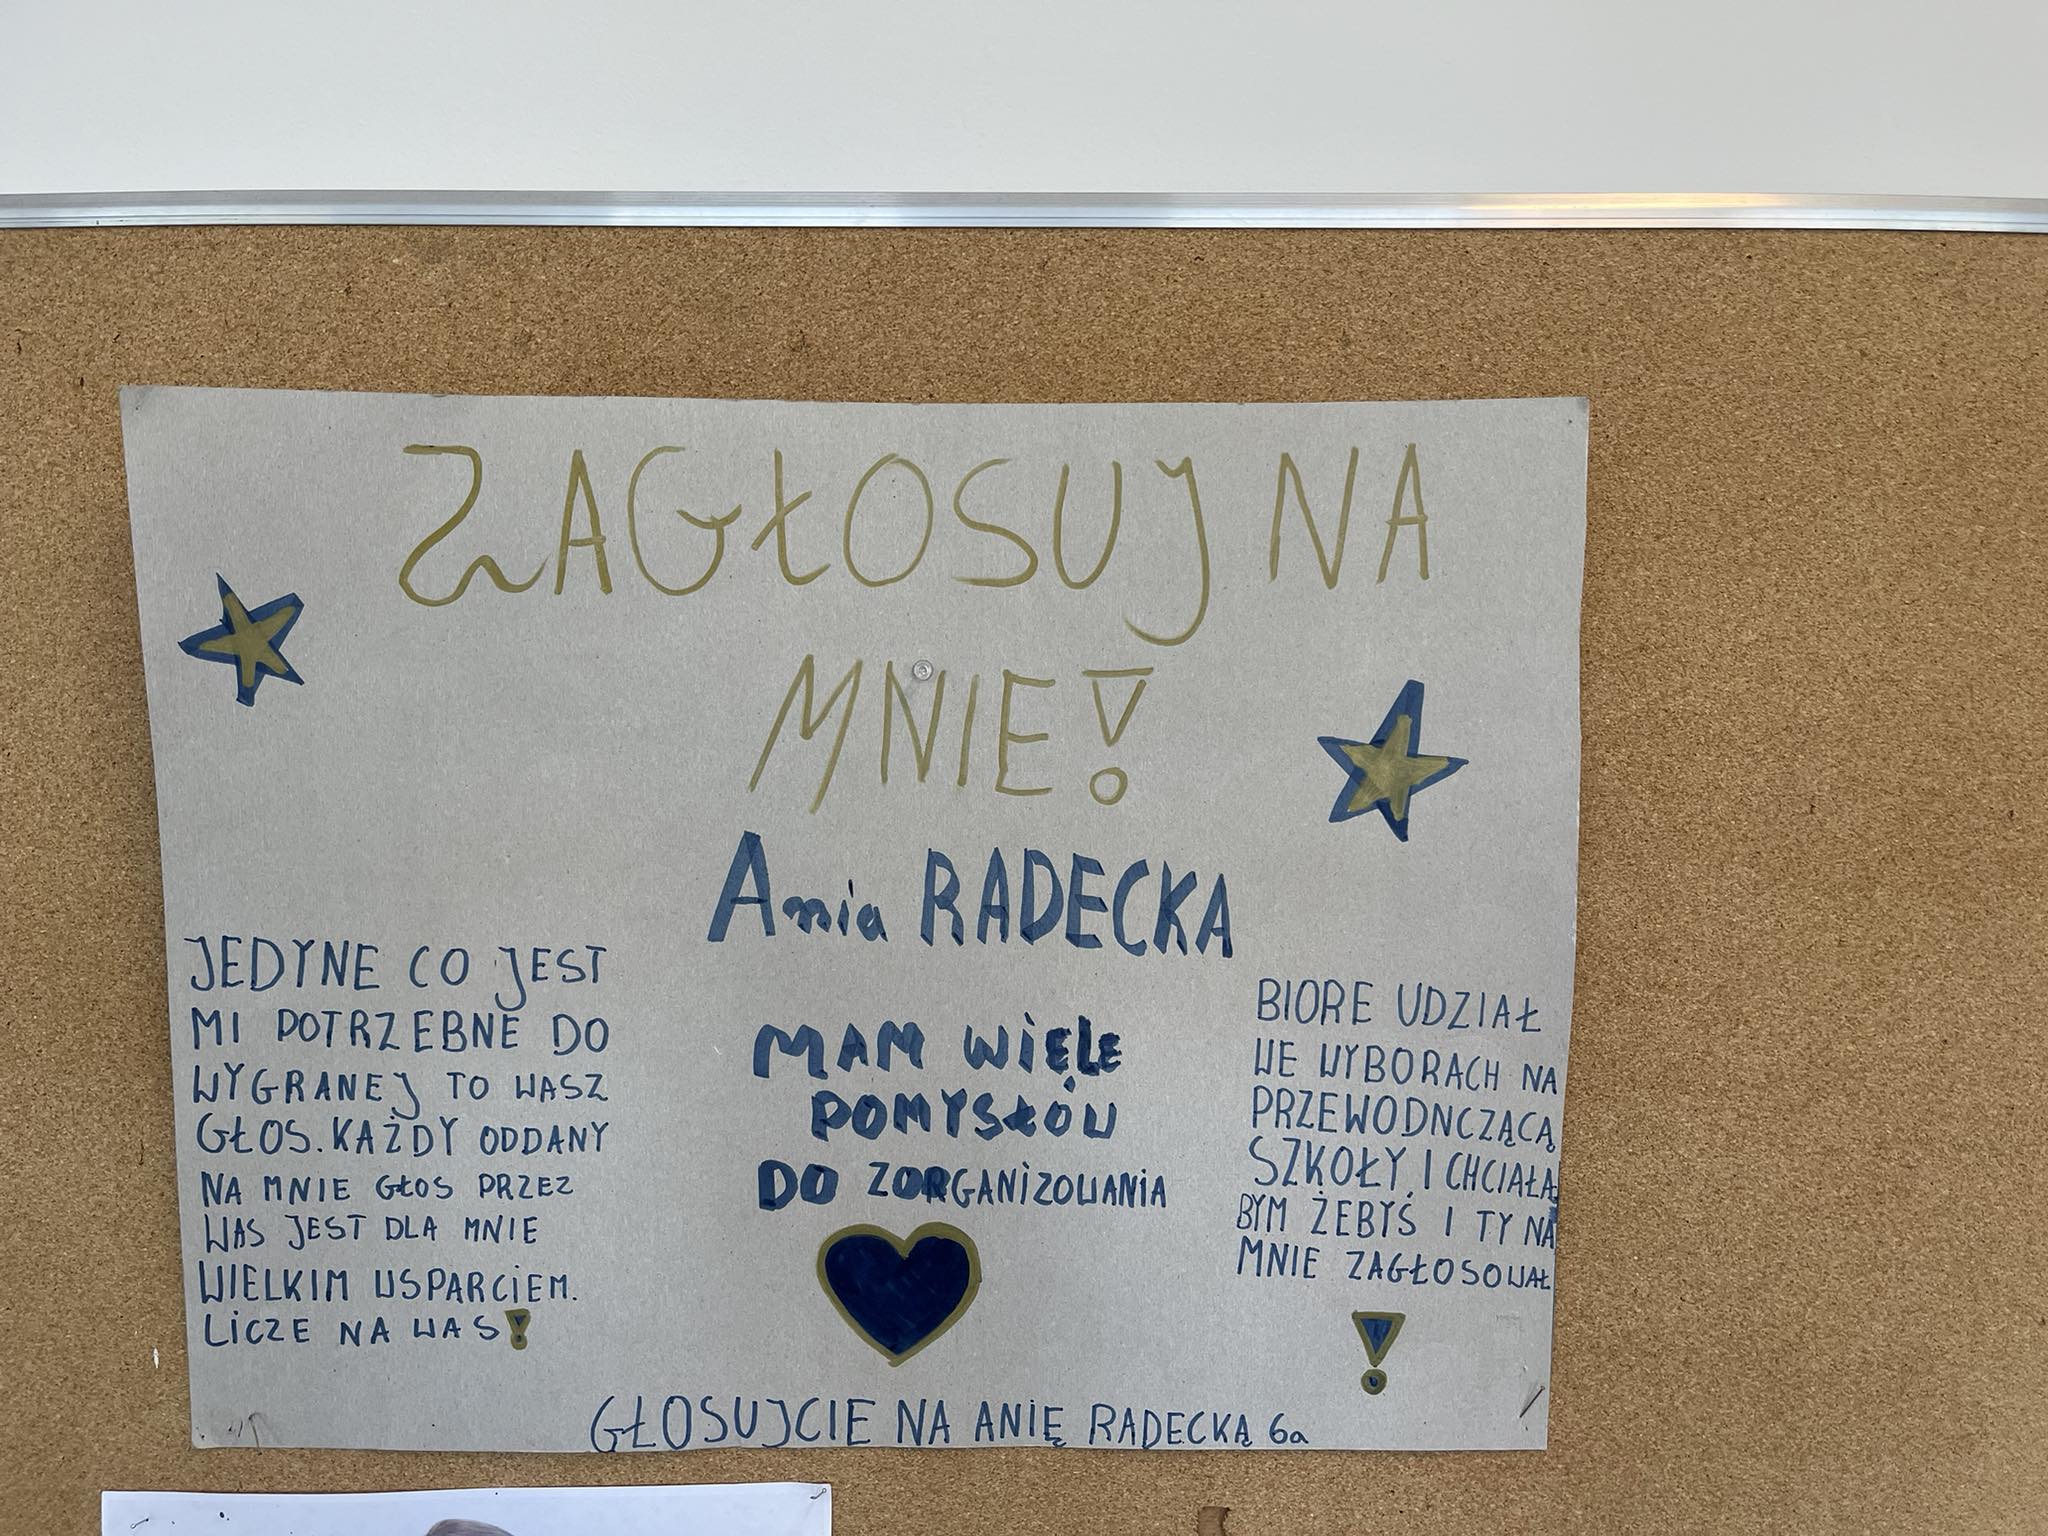 ZAGŁOSUJ NA
MNIE!
Ania RADECKA
JEDYNE CO JEST
MI POTRZEBNE DO
WYGRANEJ TO WASZ
GŁOS. KAŻDY ODDANY
NA MNIE GŁOS PRZEZ
WAS JEST DLA MNIE
WIELKIM WSPARCIEM.
LICZE NA WAS!
MAM WIELE
POMYSŁÓW
DO ZORGANIZOWANIA
BIORE UDZIAŁ
WE WYBORACH NA
PRZEWODNCZĄCĄ
SZKOŁY. I CHCIAŁA
BYM ŻEBYŚ I TY NA
MNIE ZAGŁOSOWAŁ
!
GŁOSUJCIE NA ANIĘ RADECKĄ 6a